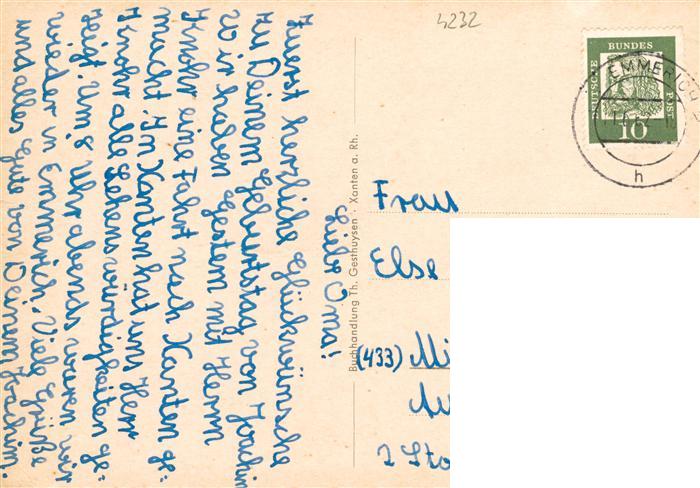 Liebe Oma!
Zuerst herzliche Glückwünsche
zu Deinem Geburtstag von Joachim
Wir haben Gestern mit Herrn
Knohr eine Fahrt nach Xanten ge=
macht. In Xanten hat uns Herr
Knohr alle Sehenswürdigkeiten ge=
zeigt. Um 8 Uhr abends waren wir
wieder in Emmerich. Viele Grüße
und alles Gute von Deinem Joachim.
Buchhandlung Th. Gesthuysen · Xanten a. Rh.
4232
DEUTSCHE BUNDES POST
10
EMMERICH
h
Frau
Else
(433) Mü
2 Sto